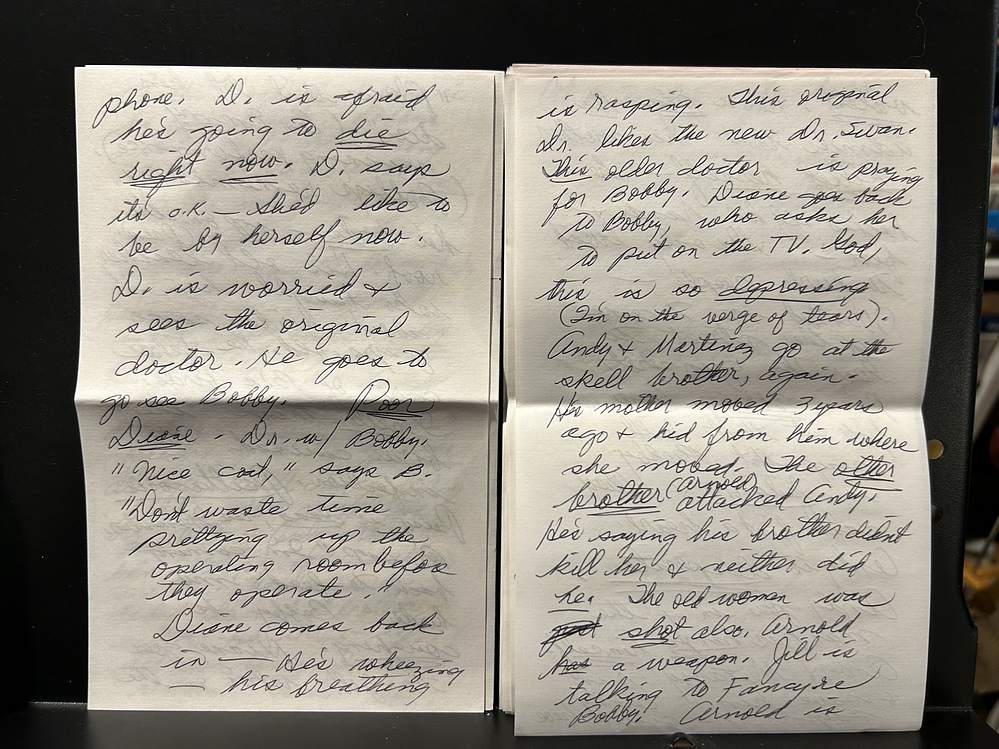 phone. D. is afraid
he's going to die
right now. D. says
it's o.k. — She'd like to
be by herself now.
D. is worried &
sees the original
doctor. He goes to
go see Bobby. Poor
Diane - Dr. w/ Bobby.
"Nice coat," says B.
"Don't waste time
prettying up the
operating room before
they operate."
Diane comes back
in — He's wheezing
— his breathing
is rasping. This original
Dr. likes the new Dr. Swan.
This older doctor is praying
for Bobby. Diane goes back
to Bobby, who asks her
to put on the TV. God,
this is so depressing
(I'm on the verge of tears).
Andy & Martinez go at the
skell brother, again.
His mother moved 3 years
ago & hid from him where
she moved. The other
brother (Arnold) attacked Andy.
He's saying his brother didn't
kill her & neither did
he. The old women was
shot also. Arnold
has a weapon. Jill is
talking to Fancy re
Bobby. Arnold is